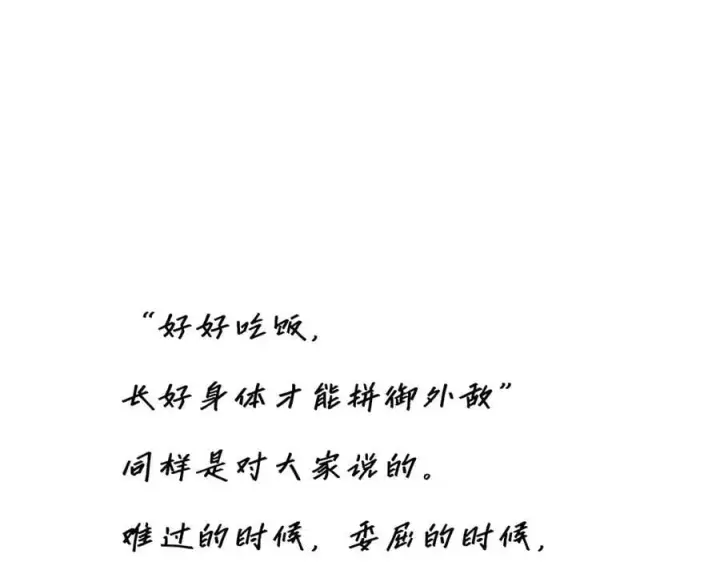 “好好吃饭,
长好身体才能拼御外敌”
同样是对大家说的。
难过的时候,委屈的时候,